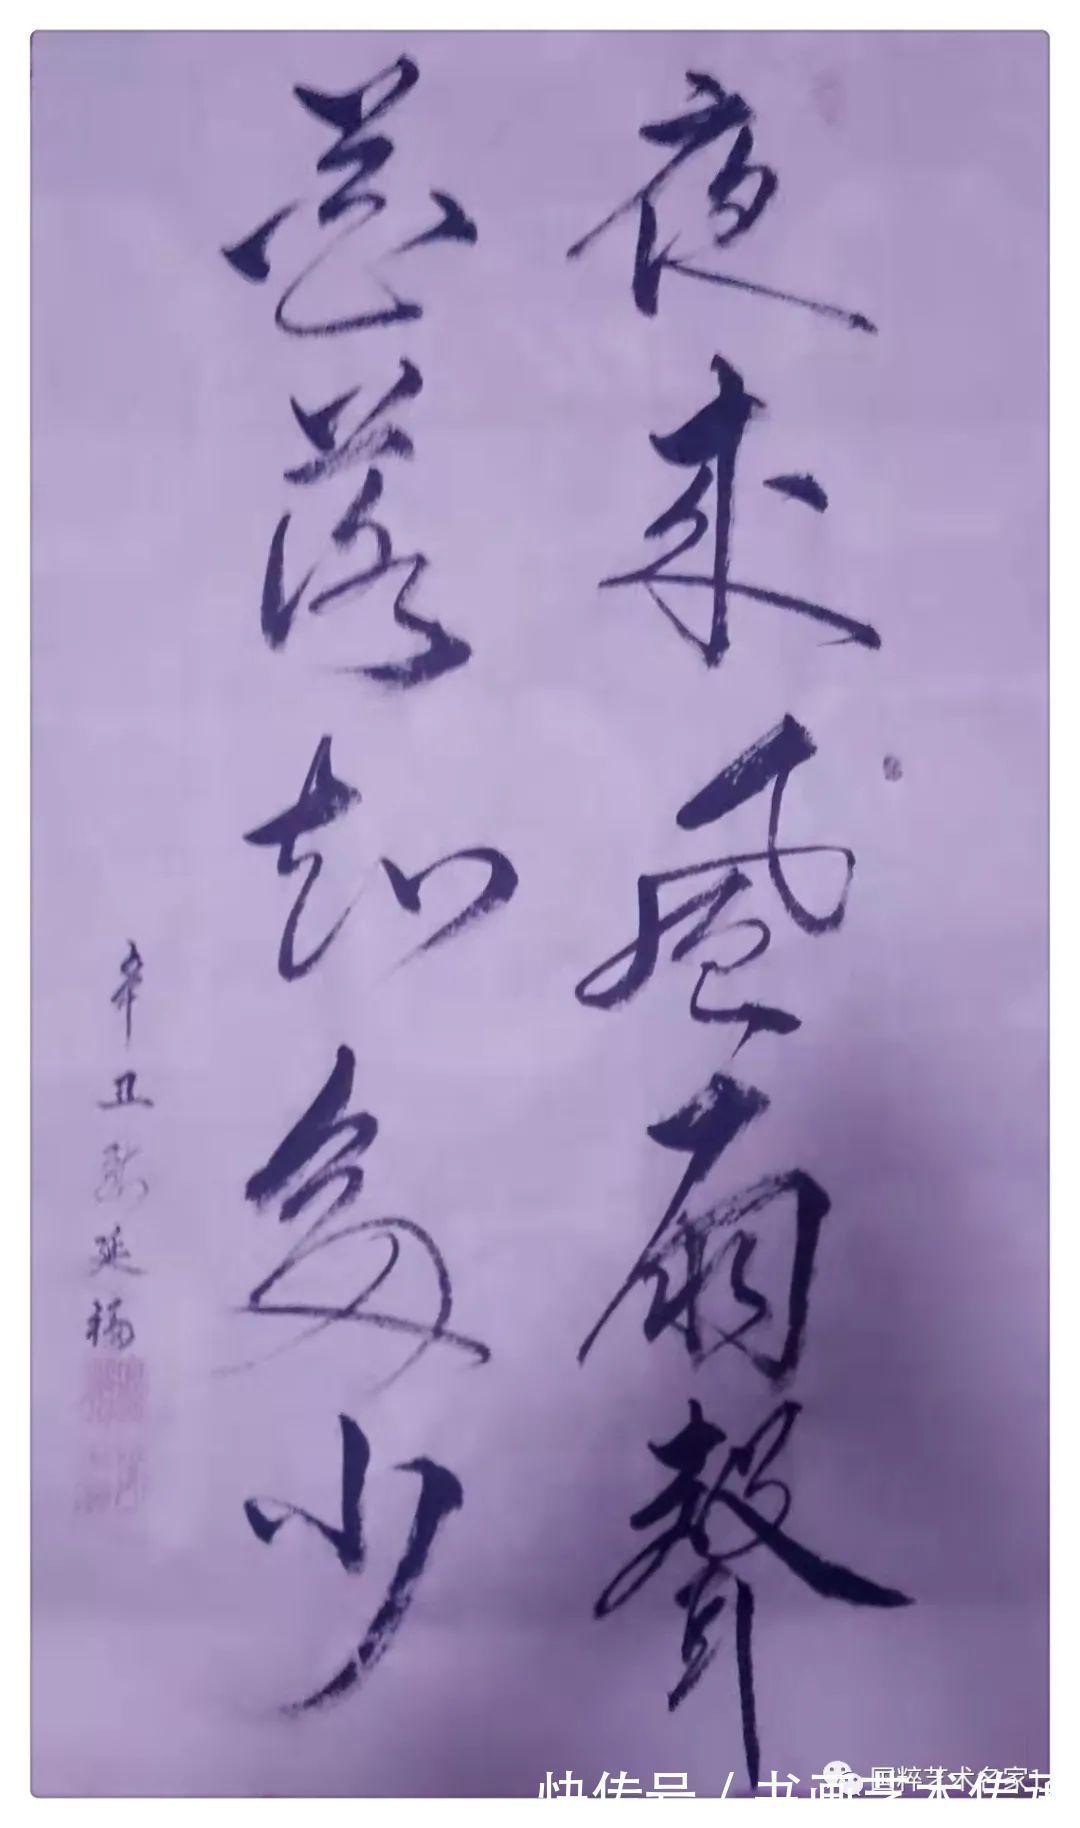 夜来风雨聲
花落知多少
辛丑 延福
快传号 / 书画艺术传
国粹艺术名家